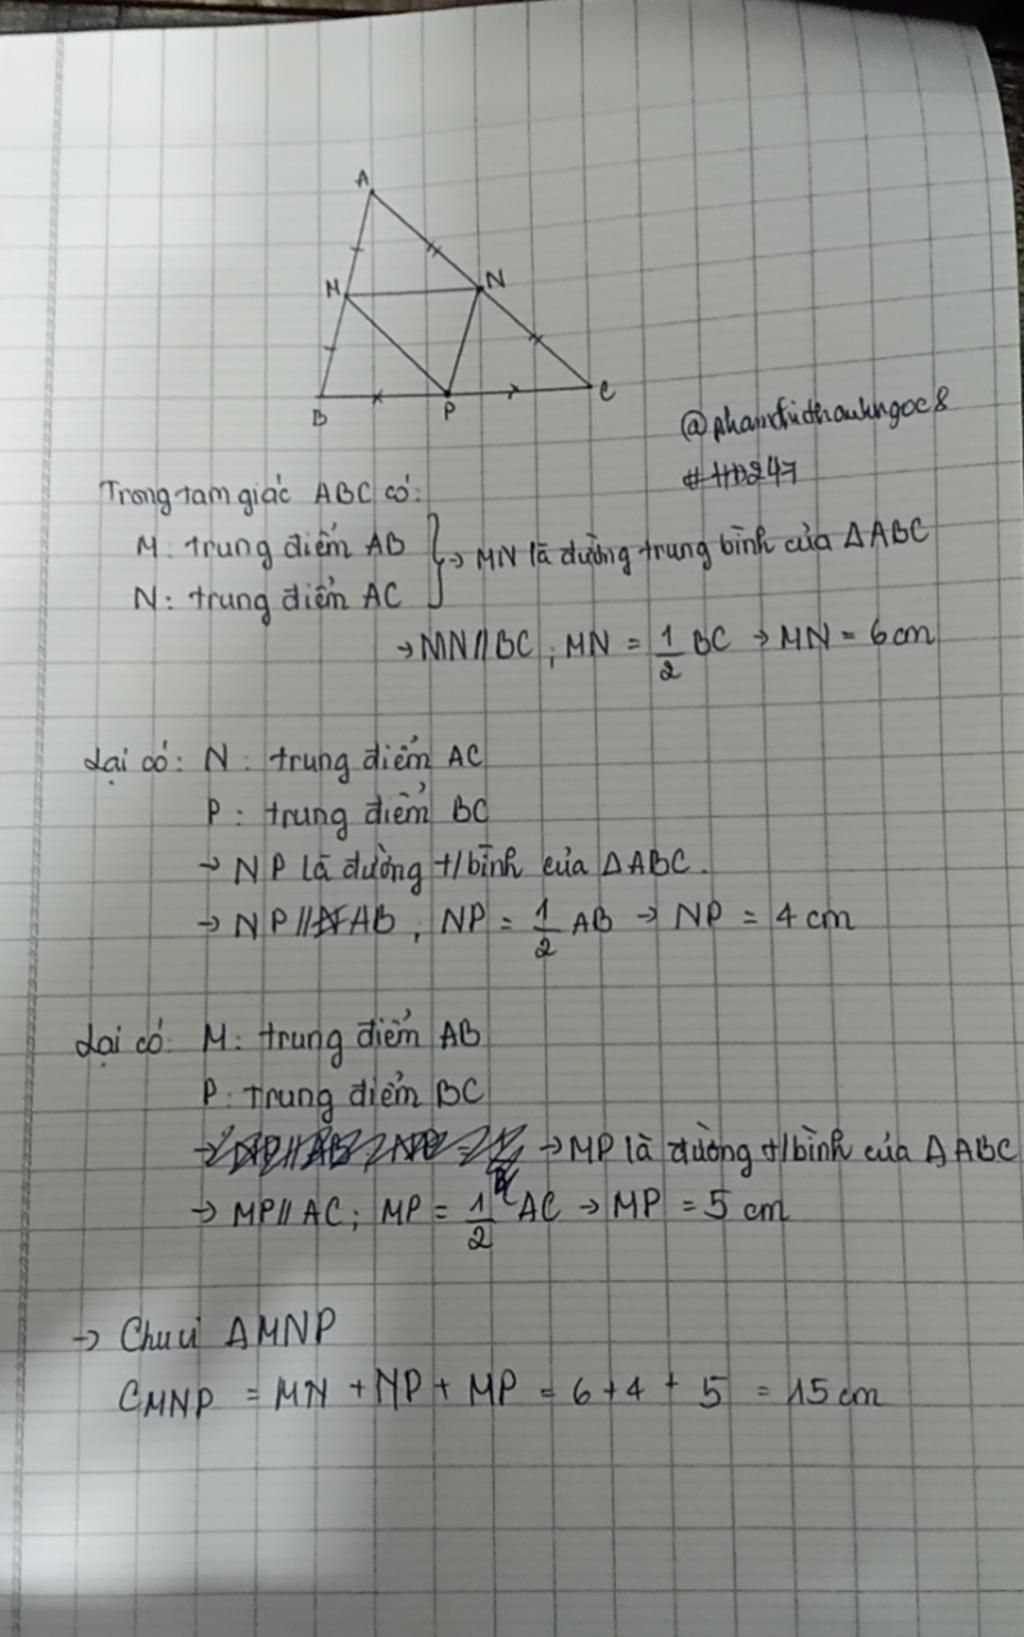 A
M
N
B
P
C
@phamthithanhngoc8
#HD247
Trong tam giác ABC có:
M: trung điểm AB
→ MN là đường trung bình của ΔABC
N: trung điểm AC
→ MN // BC ; MN = 1/2 BC → MN = 6 cm
Lại có: N: trung điểm AC
P: trung điểm BC
→ NP là đường t/bình của ΔABC.
→ NP // AB , NP = 1/2 AB → NP = 4 cm
Lại có: M: trung điểm AB
P: trung điểm BC
→ MP là đường t/bình của ΔABC
→ MP // AC ; MP = 1/2 AC → MP = 5 cm
→ Chu vi ΔMNP
CMNP = MN + NP + MP = 6 + 4 + 5 = 15 cm